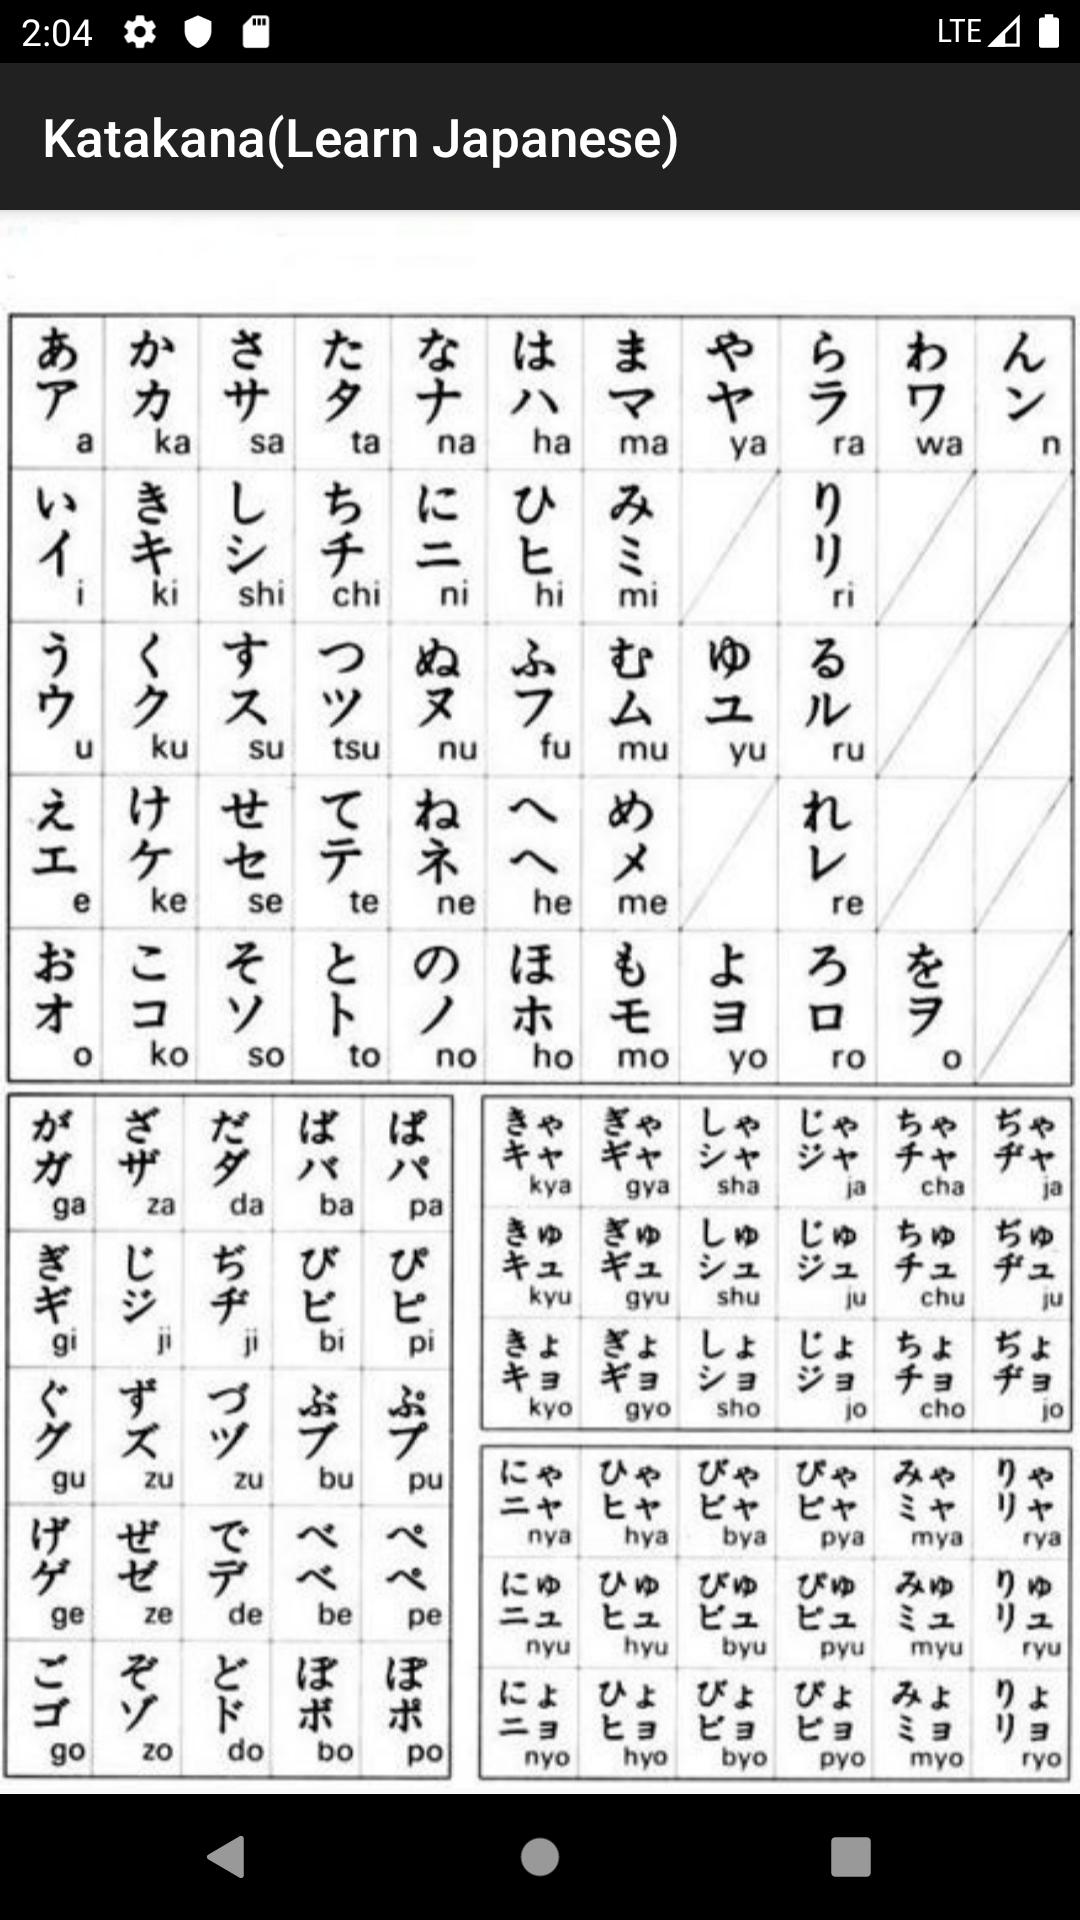 2:04
LTE
Katakana(Learn Japanese)
あ か さ た な は ま や ら わ ん
ア カ サ タ ナ ハ マ ヤ ラ ワ ン
a ka sa ta na ha ma ya ra wa n
い き し ち に ひ み り
イ キ シ チ ニ ヒ ミ リ
i ki shi chi ni hi mi ri
う く す つ ぬ ふ む ゆ る
ウ ク ス ツ ヌ フ ム ユ ル
u ku su tsu nu fu mu yu ru
え け せ て ね へ め れ
エ ケ セ テ ネ ヘ メ レ
e ke se te ne he me re
お こ そ と の ほ も よ ろ を
オ コ ソ ト ノ ホ モ ヨ ロ ヲ
o ko so to no ho mo yo ro o
が ざ だ ば ぱ
ガ ザ ダ バ パ
ga za da ba pa
ぎ じ ぢ び ぴ
ギ ジ ヂ ビ ピ
gi ji ji bi pi
ぐ ず づ ぶ ぷ
グ ズ ヅ ブ プ
gu zu zu bu pu
げ ぜ で べ ぺ
ゲ ゼ デ ベ ペ
ge ze de be pe
ご ぞ ど ぼ ぽ
ゴ ゾ ド ボ ポ
go zo do bo po
きゃ ぎゃ しゃ じゃ ちゃ ぢゃ
キャ ギャ シャ ジャ チャ ヂャ
kya gya sha ja cha ja
きゅ ぎゅ しゅ じゅ ちゅ ぢゅ
キュ ギュ シュ ジュ チュ ヂュ
kyu gyu shu ju chu ju
きょ ぎょ しょ じょ ちょ ぢょ
キョ ギョ ショ ジョ チョ ヂョ
kyo gyo sho jo cho jo
にゃ ひゃ びゃ ぴゃ みゃ りゃ
ニャ ヒャ ビャ ピャ ミャ リャ
nya hya bya pya mya rya
にゅ ひゅ びゅ ぴゅ みゅ りゅ
ニュ ヒュ ビュ ピュ ミュ リュ
nyu hyu byu pyu myu ryu
にょ ひょ びょ ぴょ みょ りょ
ニョ ヒョ ビョ ピョ ミョ リョ
nyo hyo byo pyo myo ryo